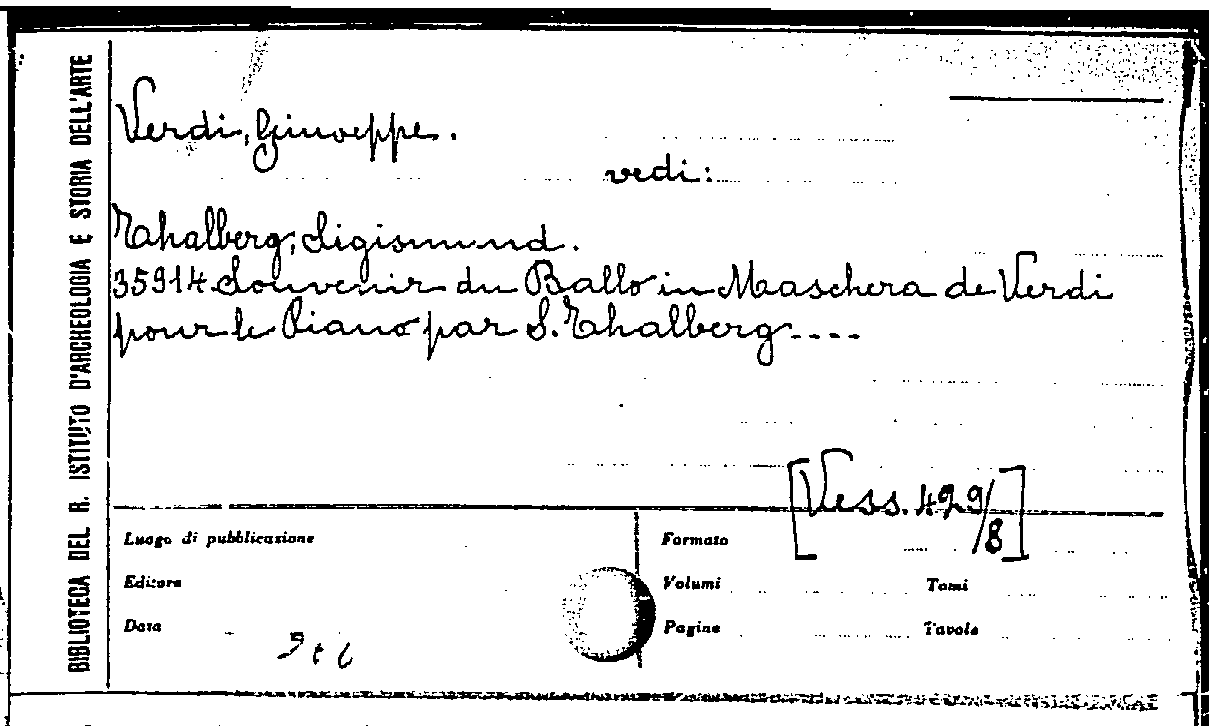 BIBLIOTECA DEL R. ISTITUTO D'ARCHEOLOGIA E STORIA DELL'ARTE
Verdi, Giuseppe.
vedi:
Thalberg, Sigismund.
35914 Souvenir du Ballo in Maschera de Verdi
pour le Piano par S. Thalberg----
[Vess. 429/8]
Luogo di pubblicazione
Formato
Editore
Volumi
Tomi
Data
Pagine
Tavole